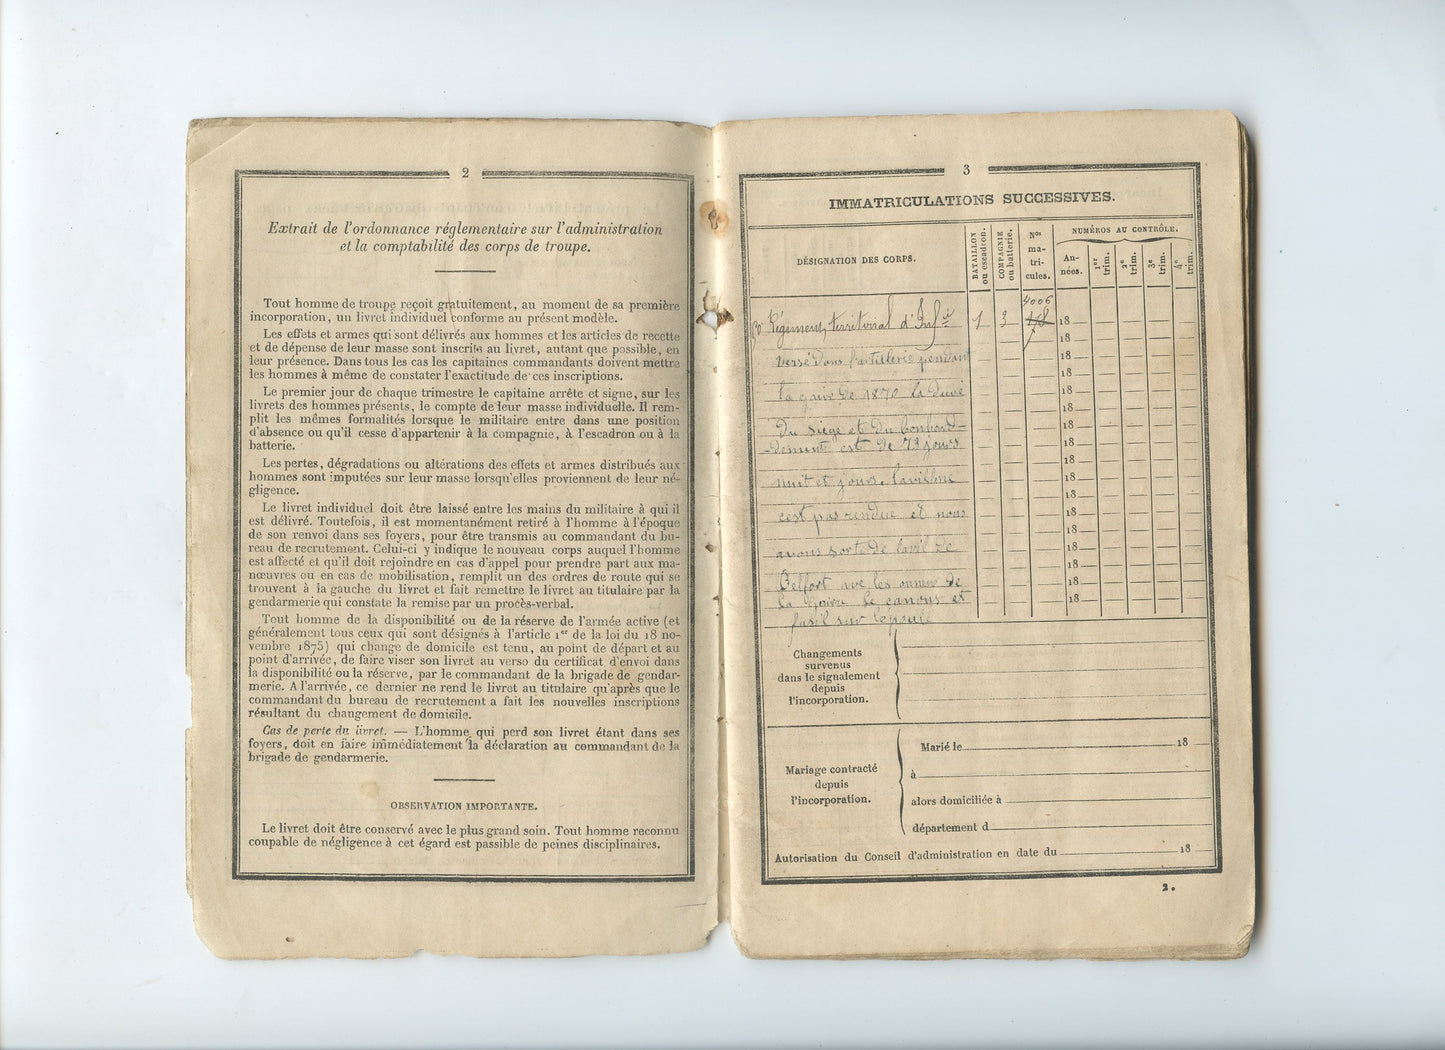 2
Extrait de l'ordonnance réglementaire sur l'administration
et la comptabilité des corps de troupe.
Tout homme de troupe reçoit gratuitement, au moment de sa première
incorporation, un livret individuel conforme au présent modèle.
Les effets et armes qui sont délivrés aux hommes et les articles de recette
et de dépense de leur masse sont inscrits au livret, autant que possible, en
leur présence. Dans tous les cas les capitaines commandants doivent mettre
les hommes à même de constater l'exactitude de ces inscriptions.
Le premier jour de chaque trimestre le capitaine arrête et signe, sur les
livrets des hommes présents, le compte de leur masse individuelle. Il rem-
plit les mêmes formalités lorsque le militaire entre dans une position
d'absence ou qu'il cesse d'appartenir à la compagnie, à l'escadron ou à la
batterie.
Les pertes, dégradations ou altérations des effets et armes distribués aux
hommes sont imputées sur leur masse lorsqu'elles proviennent de leur né-
gligence.
Le livret individuel doit être laissé entre les mains du militaire à qui il
est délivré. Toutefois, il est momentanément retiré à l'homme à l'époque
de son renvoi dans ses foyers, pour être transmis au commandant du bu-
reau de recrutement. Celui-ci y indique le nouveau corps auquel l'homme
est affecté et qu'il doit rejoindre en cas d'appel pour prendre part aux ma-
nœuvres ou en cas de mobilisation, remplit un des ordres de route qui se
trouvent à la gauche du livret et fait remettre le livret au titulaire par la
gendarmerie qui constate la remise par un procès-verbal.
Tout homme de la disponibilité ou de la réserve de l'armée active (et
généralement tous ceux qui sont désignés à l'article 1er de la loi du 18 no-
vembre 1875) qui change de domicile est tenu, au point de départ et au
point d'arrivée, de faire viser son livret au verso du certificat d'envoi dans
la disponibilité ou la réserve, par le commandant de la brigade de gendar-
merie. A l'arrivée, ce dernier ne rend le livret au titulaire qu'après que le
commandant du bureau de recrutement a fait les nouvelles inscriptions
résultant du changement de domicile.
Cas de perte du livret. — L'homme qui perd son livret étant dans ses
foyers, doit en faire immédiatement la déclaration au commandant de la
brigade de gendarmerie.
OBSERVATION IMPORTANTE.
Le livret doit être conservé avec le plus grand soin. Tout homme reconnu
coupable de négligence à cet égard est passible de peines disciplinaires.
3
IMMATRICULATIONS SUCCESSIVES.
DÉSIGNATION DES CORPS.
BATAILLON
ou escadron.
COMPAGNIE
ou batterie.
Nos
ma-
tri-
cules.
NUMÉROS AU CONTRÔLE.
An-
nées.
1er
trim.
2e
trim.
3e
trim.
4e
trim.
4006
Régiment territorial d'Infie 1 3 18
18
versé dans l'artillerie pendant 18
18
la guere de 1870 la duré 18
18
du siege et du bonbard- 18
-dement est de 73 jours 18
18
nuit et jours. la vill ne 18
18
cest pas rendue et nous 18
18
avons sorte de la vil de 18
18
Belfort ave les onneur de 18
la Gaire le canons et 18
fusil sur l'épaule
Changements
survenus
dans le signalement
depuis
l'incorporation.
Mariage contracté
depuis
l'incorporation.
Marié le 18
à
alors domiciliée à
département d
Autorisation du Conseil d'administration en date du 18
2.